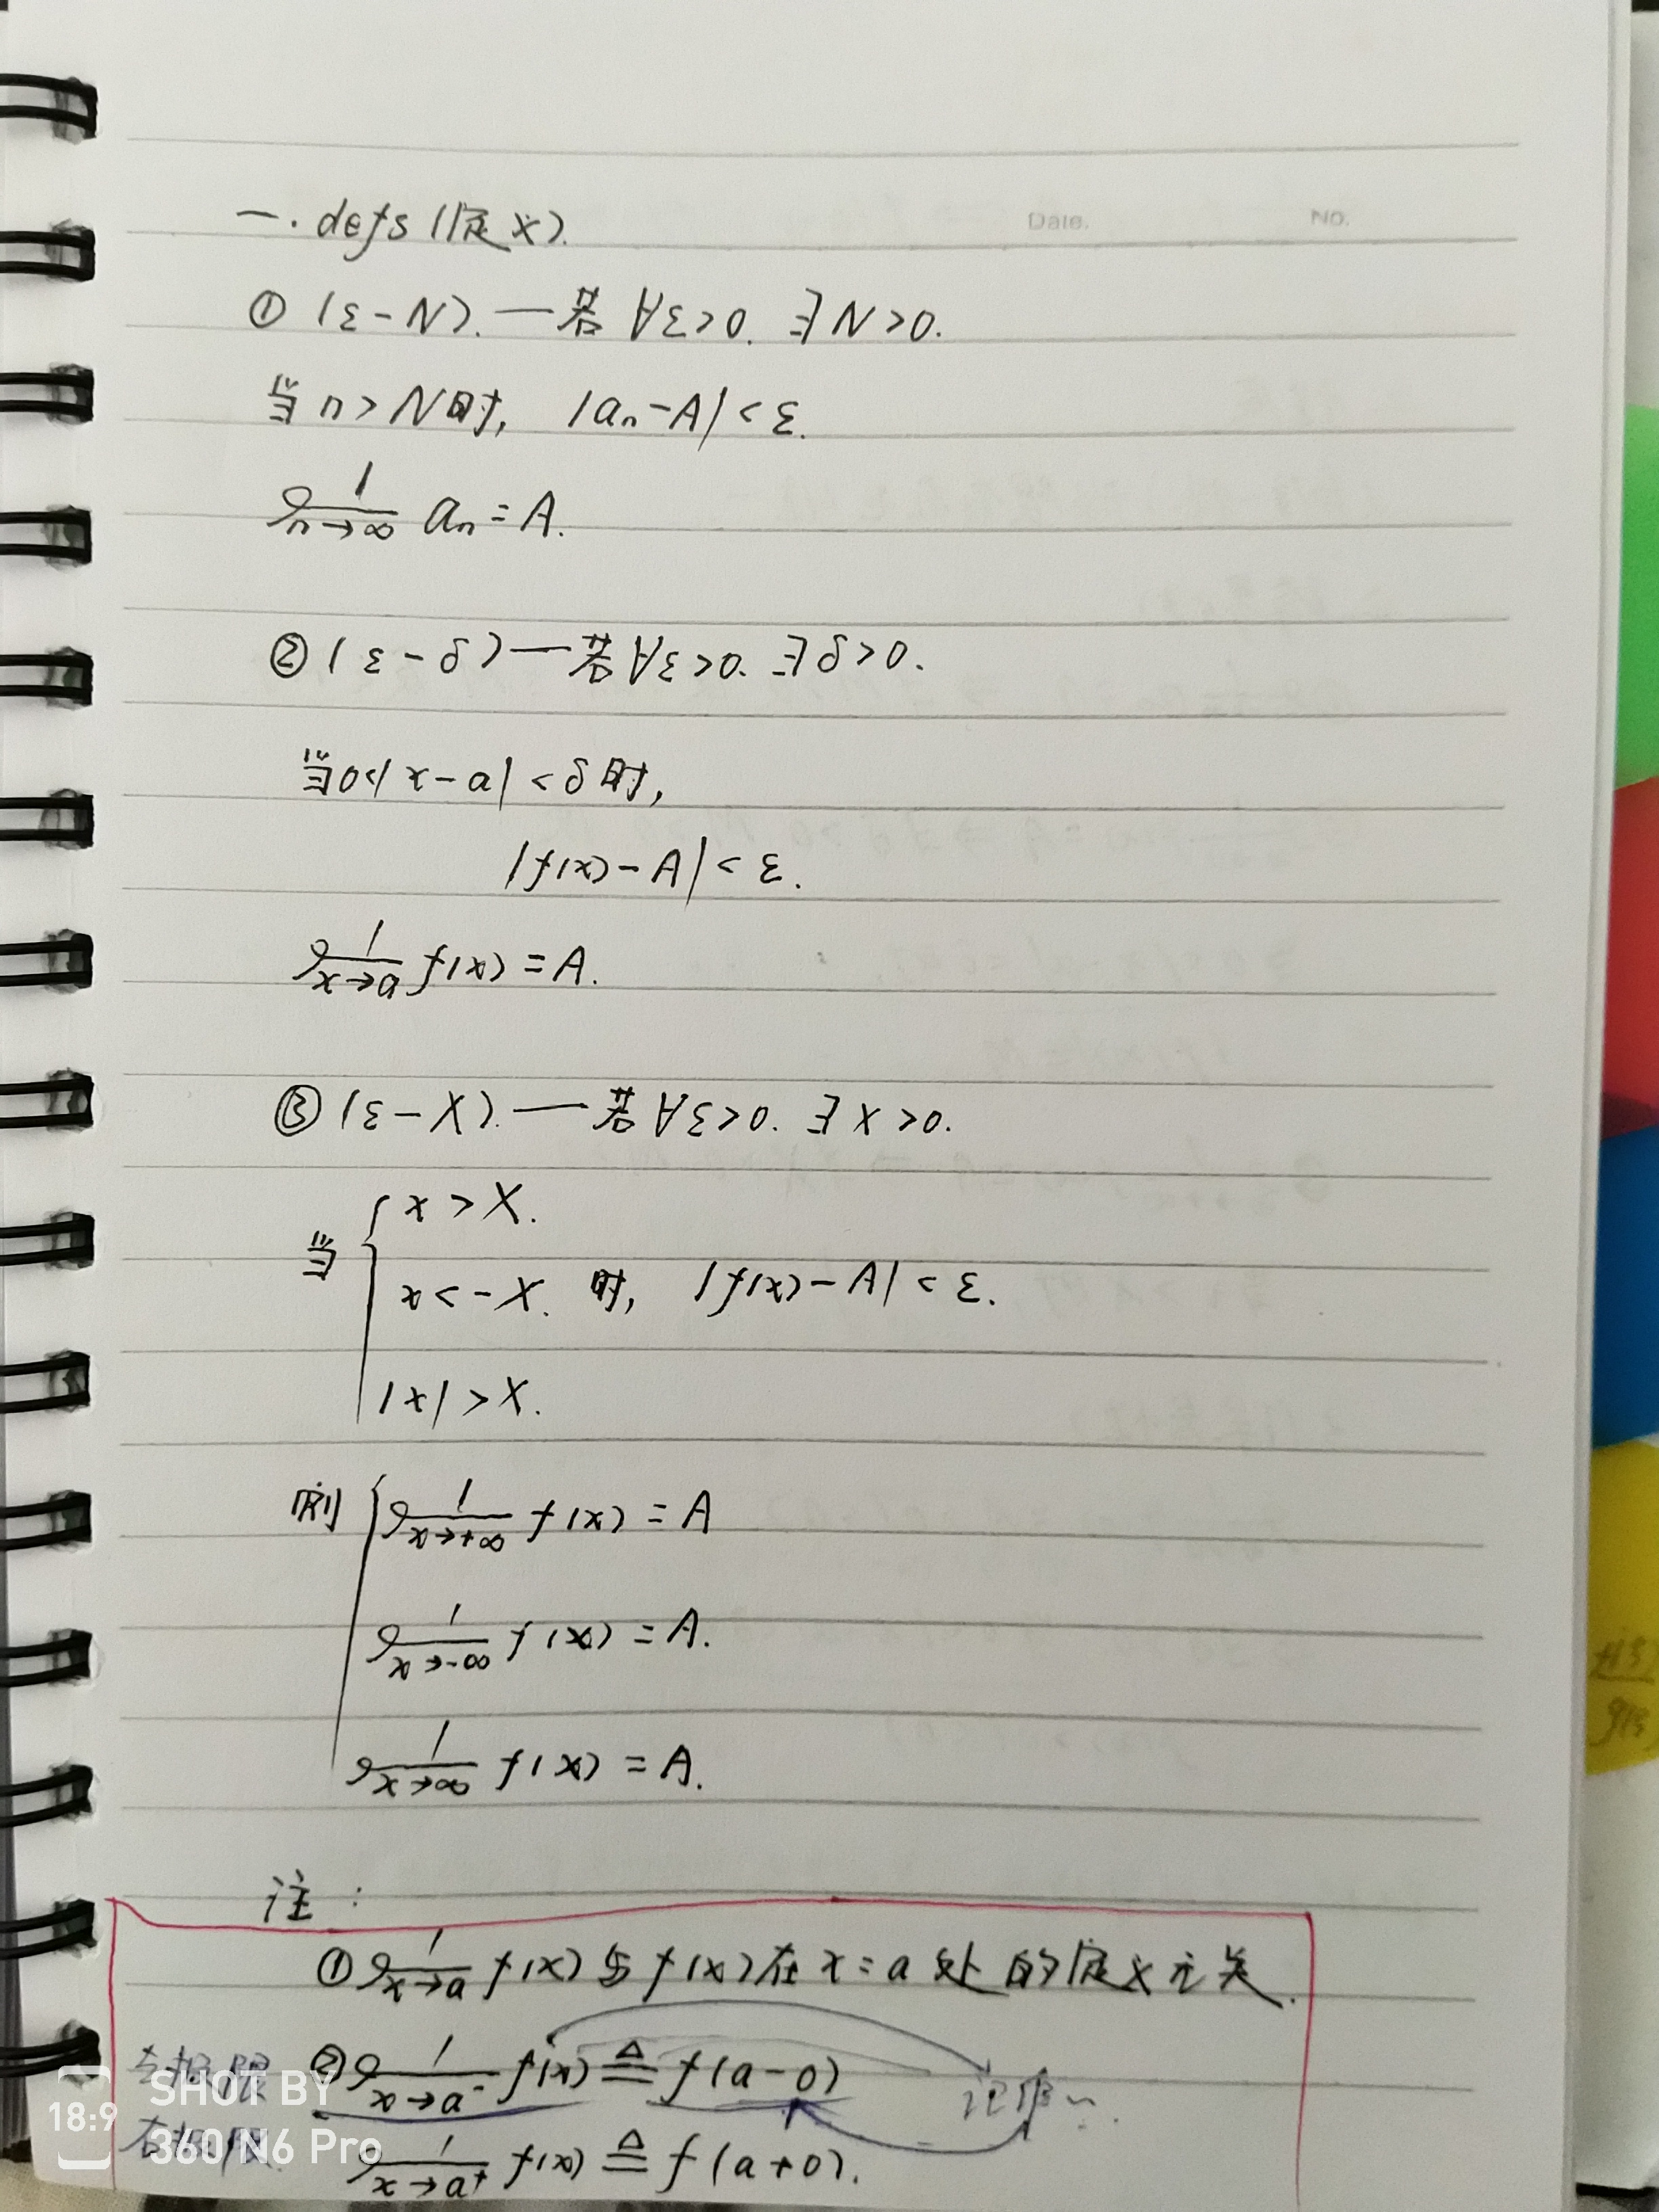 Date. No.
一. defs (定义).
① (ε-N). — 若 ∀ε>0. ∃N>0.
当 n>N时, |aₙ-A|<ε.
lim n→∞ aₙ=A.
② (ε-δ) — 若 ∀ε>0. ∃δ>0.
当0<|x-a|<δ时,
|f(x)-A|<ε.
lim x→a f(x)=A.
③ (ε-X). — 若 ∀ε>0. ∃X>0.
x>X.
当 { x<-X. 时, |f(x)-A|<ε.
|x|>X.
则 { lim x→+∞ f(x)=A
lim x→-∞ f(x)=A.
lim x→∞ f(x)=A.
注:
① lim x→a f(x)与f(x)在x=a处的定义无关.
左极限 ② lim x→a⁻ f(x) ≜ f(a-0)
记作~.
右极限. lim x→a⁺ f(x) ≜ f(a+0).
18:9 SHOT BY
360 N6 Pro